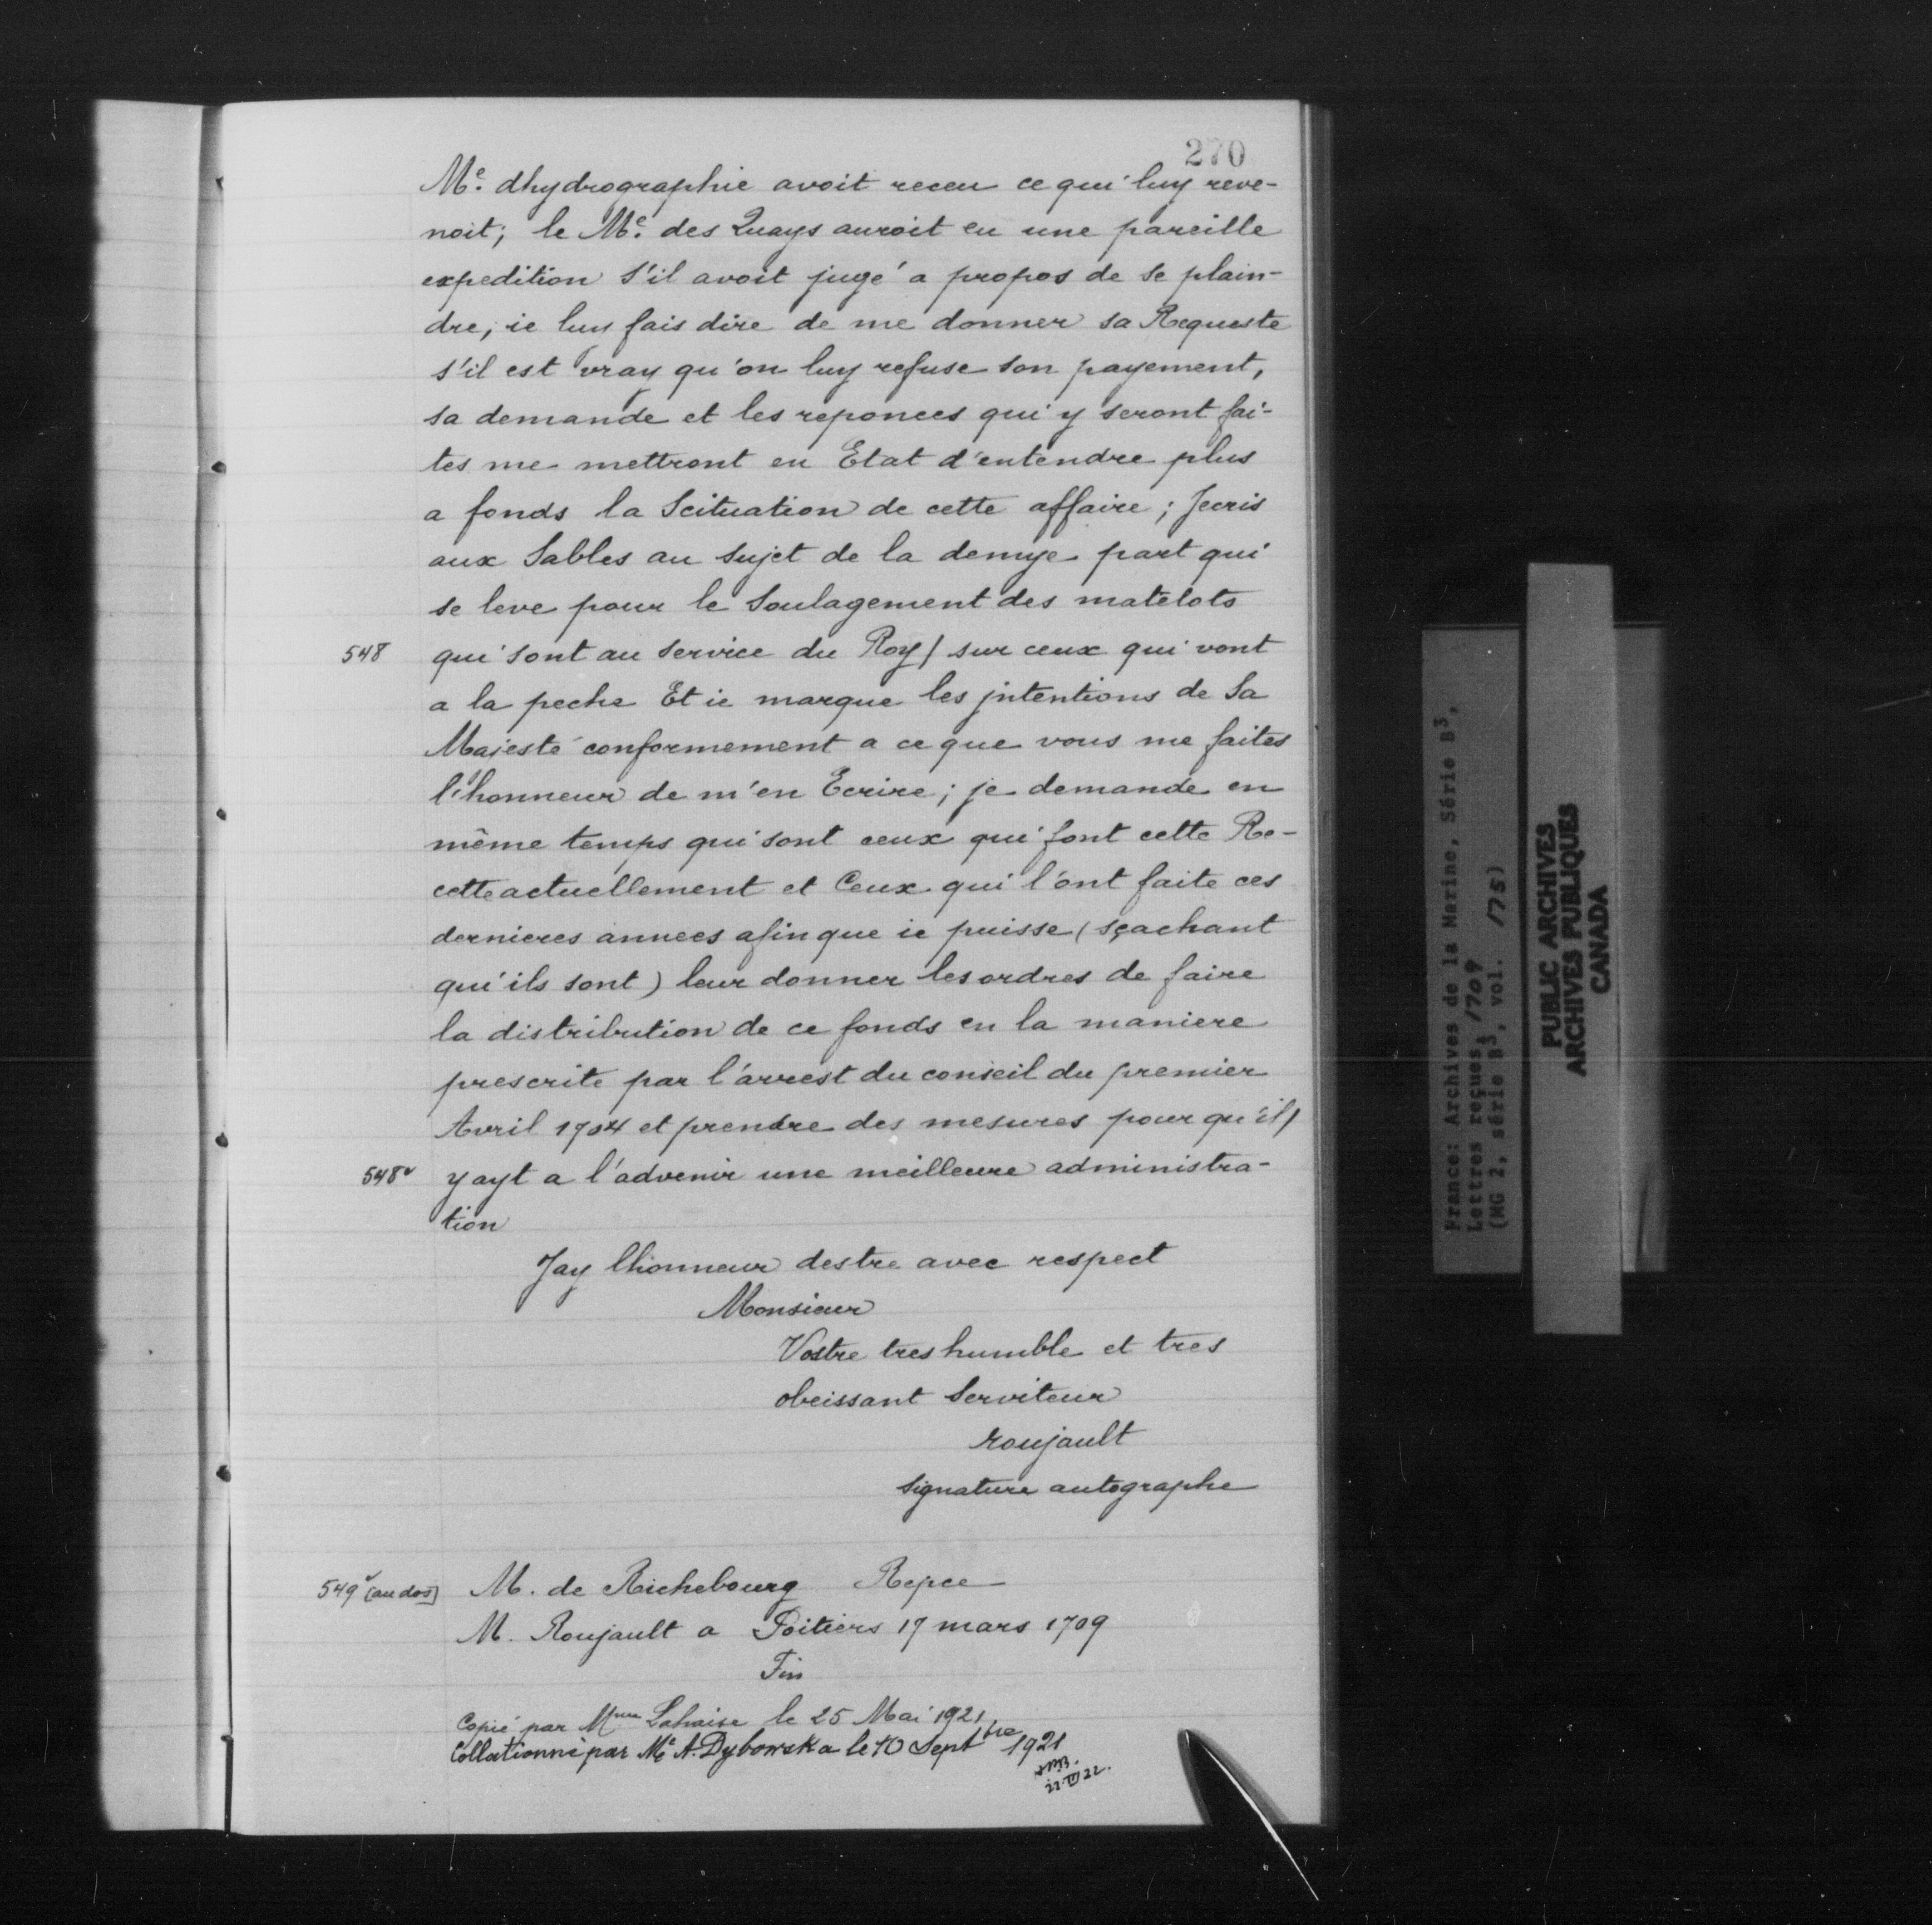 270
Me. dhydrographie avoit receu ce qui luy reve-
noit; le Me. des Quays auroit eu une pareille
expedition s'il avoit jugé a propos de se plain-
dre, ie luy fais dire de me donner sa Requeste
s'il est vray qu'on luy refuse son payement,
sa demande et les reponces qui y seront fai-
tes me mettront en Etat d'entendre plus
a fonds la Scituation de cette affaire; Jecris
aux Sables au sujet de la demye part qui
se leve pour le Soulagement des matelots
548 qui sont au service du Roy/ sur ceux qui vont
a la peche Et ie marque les jntentions de Sa
Majesté conformement a ce que vous me faites
l'honneur de m'en Ecrire; je demande en
même temps qui sont ceux qui font cette Re-
cette actuellement et Ceux qui l'ont faite ces
dernieres annees afin que ie puisse (sçachant
qui ils sont) leur donner les ordres de faire
la distribution de ce fonds en la maniere
prescrite par l'arrest du conseil du premier
Avril 1704 et prendre des mesures pour qu'il/
548v y ayt a l'advenir une meilleure administra-
tion
Jay lhonneur destre avec respect
Monsieur
Vostre tres humble et tres
obeissant Serviteur
roujault
signature autographe
549v [au dos] M. de Richebourg Repce
M. Roujault a Poitiers 17 mars 1709
Fin
Copié par Mme Lahaise le 25 Mai 1921
Collationné par Me A. Dybowska le 10 Septbre 1921
22 III 22.
France: Archives de la Marine, Série B3,
Lettres reçues, 1709
(MG 2, série B3, vol. 175)
PUBLIC ARCHIVES
ARCHIVES PUBLIQUES
CANADA